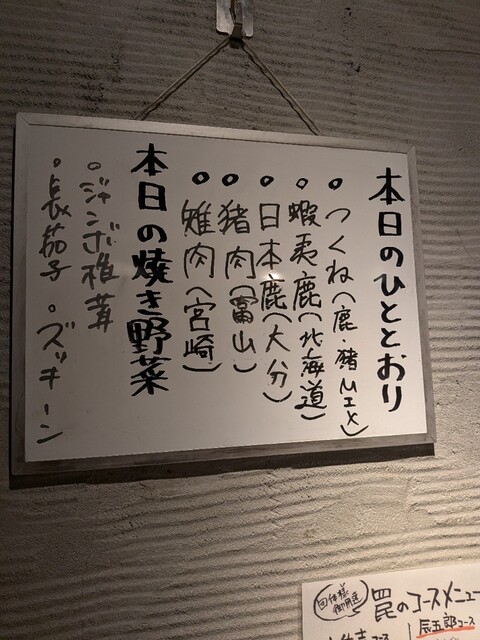 本日のひととおり
○つくね(鹿・猪MIX)
○蝦夷鹿(北海道)
○日本鹿(大分)
○猪肉(富山)
○雉肉(宮崎)
本日の焼き野菜
○ジャンボ椎茸
○長茄子 ○ズッキーニ
団体様御用達
罠のコースメニュー
辰五郎コース